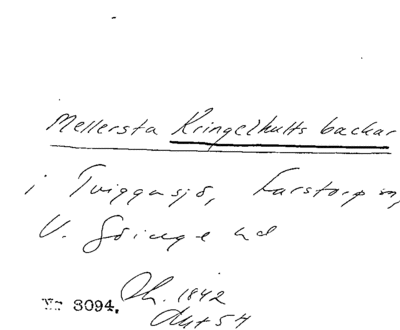 Mellersta Kringelhults backar
i Tviggasjö, Farstorp sn,
V. Göinge hd
No 3094. Dh. 1842
Akt 54